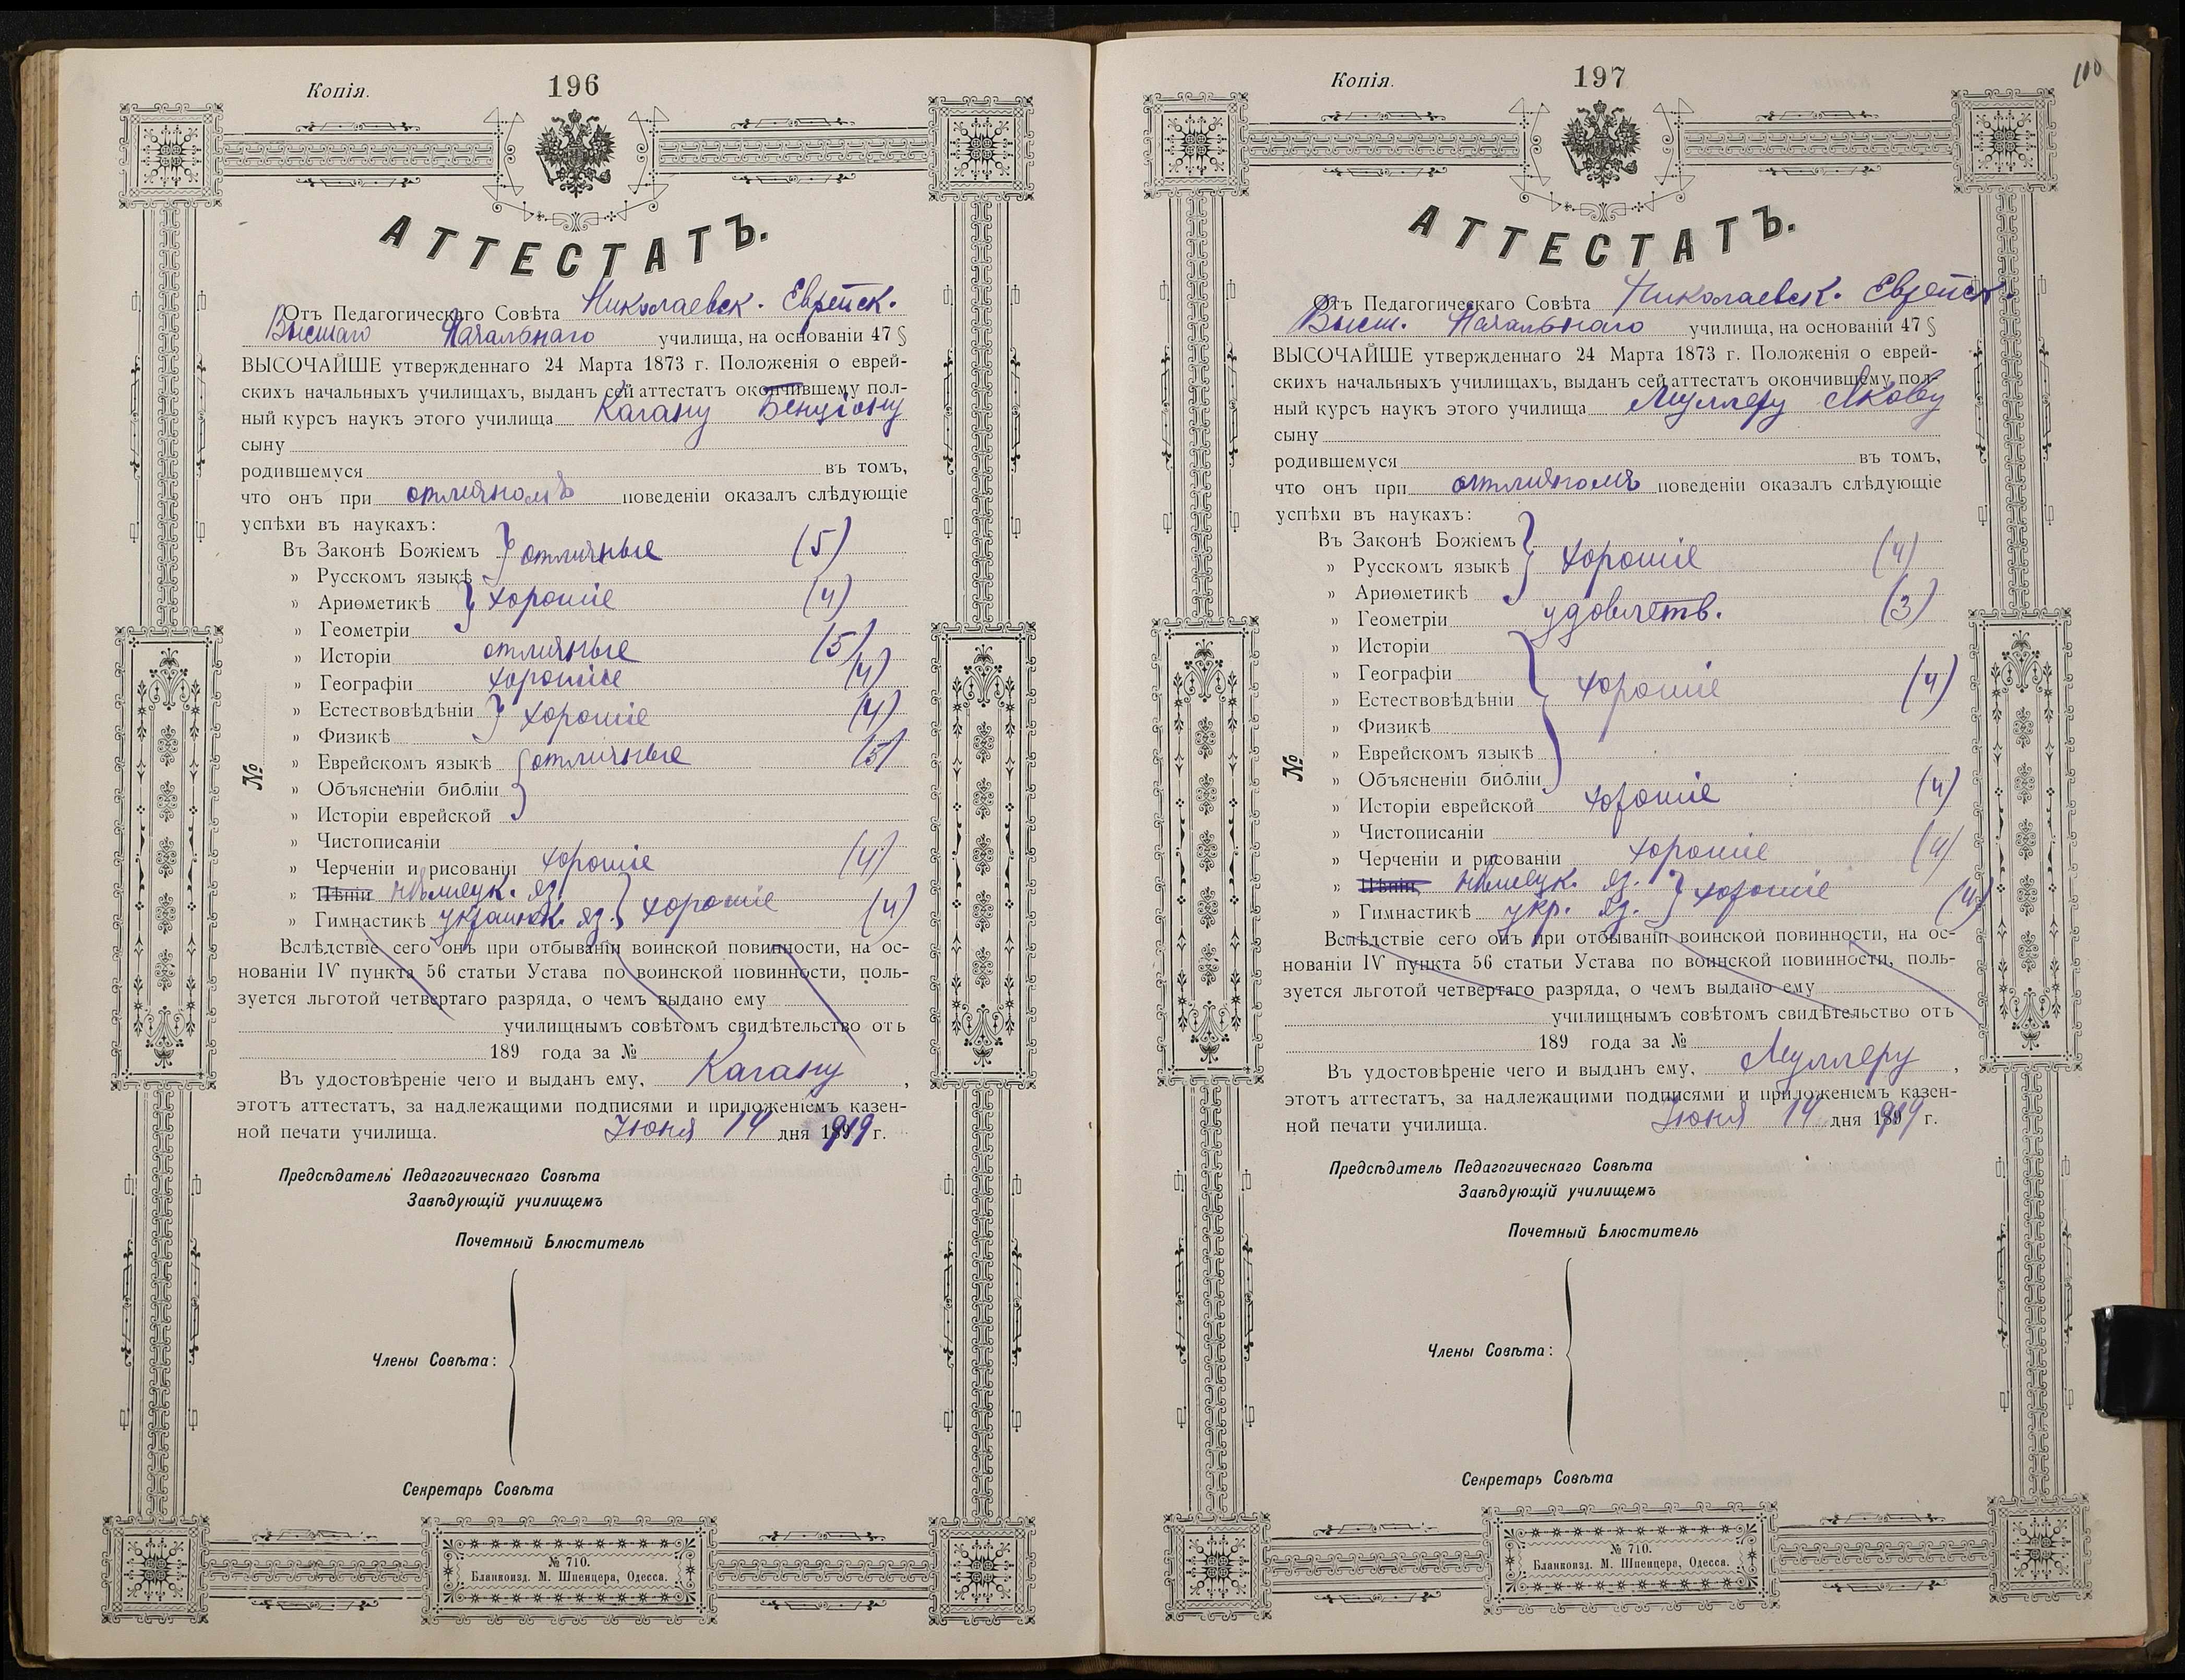 Копія.
196
АТТЕСТАТЪ.
Отъ Педагогическаго Совѣта Николаевск. Еврейск.
Высшаго Начальнаго училища, на основаніи 47 §
ВЫСОЧАЙШЕ утвержденнаго 24 Марта 1873 г. Положенія о еврей-
скихъ начальныхъ училищахъ, выданъ сей аттестатъ окончившему пол-
ный курсъ наукъ этого училища Кагану Бенціону
сыну
родившемуся въ томъ,
что онъ при отличномъ поведеніи оказалъ слѣдующіе
успѣхи въ наукахъ:
Въ Законѣ Божіемъ } отличные (5)
» Русскомъ языкѣ
» Ариѳметикѣ } хорошіе (4)
» Геометріи
» Исторіи отличные (5)
» Географіи хорошіе (4)
» Естествовѣдѣніи } хорошіе (4)
» Физикѣ
» Еврейскомъ языкѣ } отличные (5)
» Объясненіи библіи
» Исторіи еврейской
» Чистописаніи
» Черченіи и рисованіи хорошіе (4)
» Пѣніи нѣмецк. яз. } хорошіе (4)
» Гимнастикѣ украинск. яз.
Вслѣдствіе сего онъ при отбываніи воинской повинности, на ос-
нованіи IV пункта 56 статьи Устава по воинской повинности, поль-
зуется льготой четвертаго разряда, о чемъ выдано ему
училищнымъ совѣтомъ свидѣтельство отъ
189 года за №
Въ удостовѣреніе чего и выданъ ему, Кагану ,
этотъ аттестатъ, за надлежащими подписями и приложеніемъ казен-
ной печати училища. Іюня 14 дня 1919 г.
№
Предсѣдатель Педагогическаго Совѣта
Завѣдующій училищемъ
Почетный Блюститель
Члены Совѣта:
Секретарь Совѣта
№ 710.
Бланкоизд. М. Шпенцера, Одесса.
Копія.
197
110
АТТЕСТАТЪ.
Отъ Педагогическаго Совѣта Николаевск. Еврейск.
Высш. Начальнаго училища, на основаніи 47 §
ВЫСОЧАЙШЕ утвержденнаго 24 Марта 1873 г. Положенія о еврей-
скихъ начальныхъ училищахъ, выданъ сей аттестатъ окончившему пол-
ный курсъ наукъ этого училища Муллеру Якову
сыну
родившемуся въ томъ,
что онъ при отличномъ поведеніи оказалъ слѣдующіе
успѣхи въ наукахъ:
Въ Законѣ Божіемъ
» Русскомъ языкѣ } хорошіе (4)
» Ариѳметикѣ
» Геометріи удовлетв. (3)
» Исторіи
» Географіи } хорошіе (4)
» Естествовѣдѣніи
» Физикѣ
» Еврейскомъ языкѣ
» Объясненіи библіи
» Исторіи еврейской хорошіе (4)
» Чистописаніи
» Черченіи и рисованіи хорошіе (4)
» Пѣніи нѣмецк. яз. } хорошіе (4)
» Гимнастикѣ укр. яз.
Вслѣдствіе сего онъ при отбываніи воинской повинности, на ос-
нованіи IV пункта 56 статьи Устава по воинской повинности, поль-
зуется льготой четвертаго разряда, о чемъ выдано ему
училищнымъ совѣтомъ свидѣтельство отъ
189 года за №
Въ удостовѣреніе чего и выданъ ему, Муллеру ,
этотъ аттестатъ, за надлежащими подписями и приложеніемъ казен-
ной печати училища. Іюня 14 дня 1919 г.
№
Предсѣдатель Педагогическаго Совѣта
Завѣдующій училищемъ
Почетный Блюститель
Члены Совѣта:
Секретарь Совѣта
№ 710.
Бланкоизд. М. Шпенцера, Одесса.